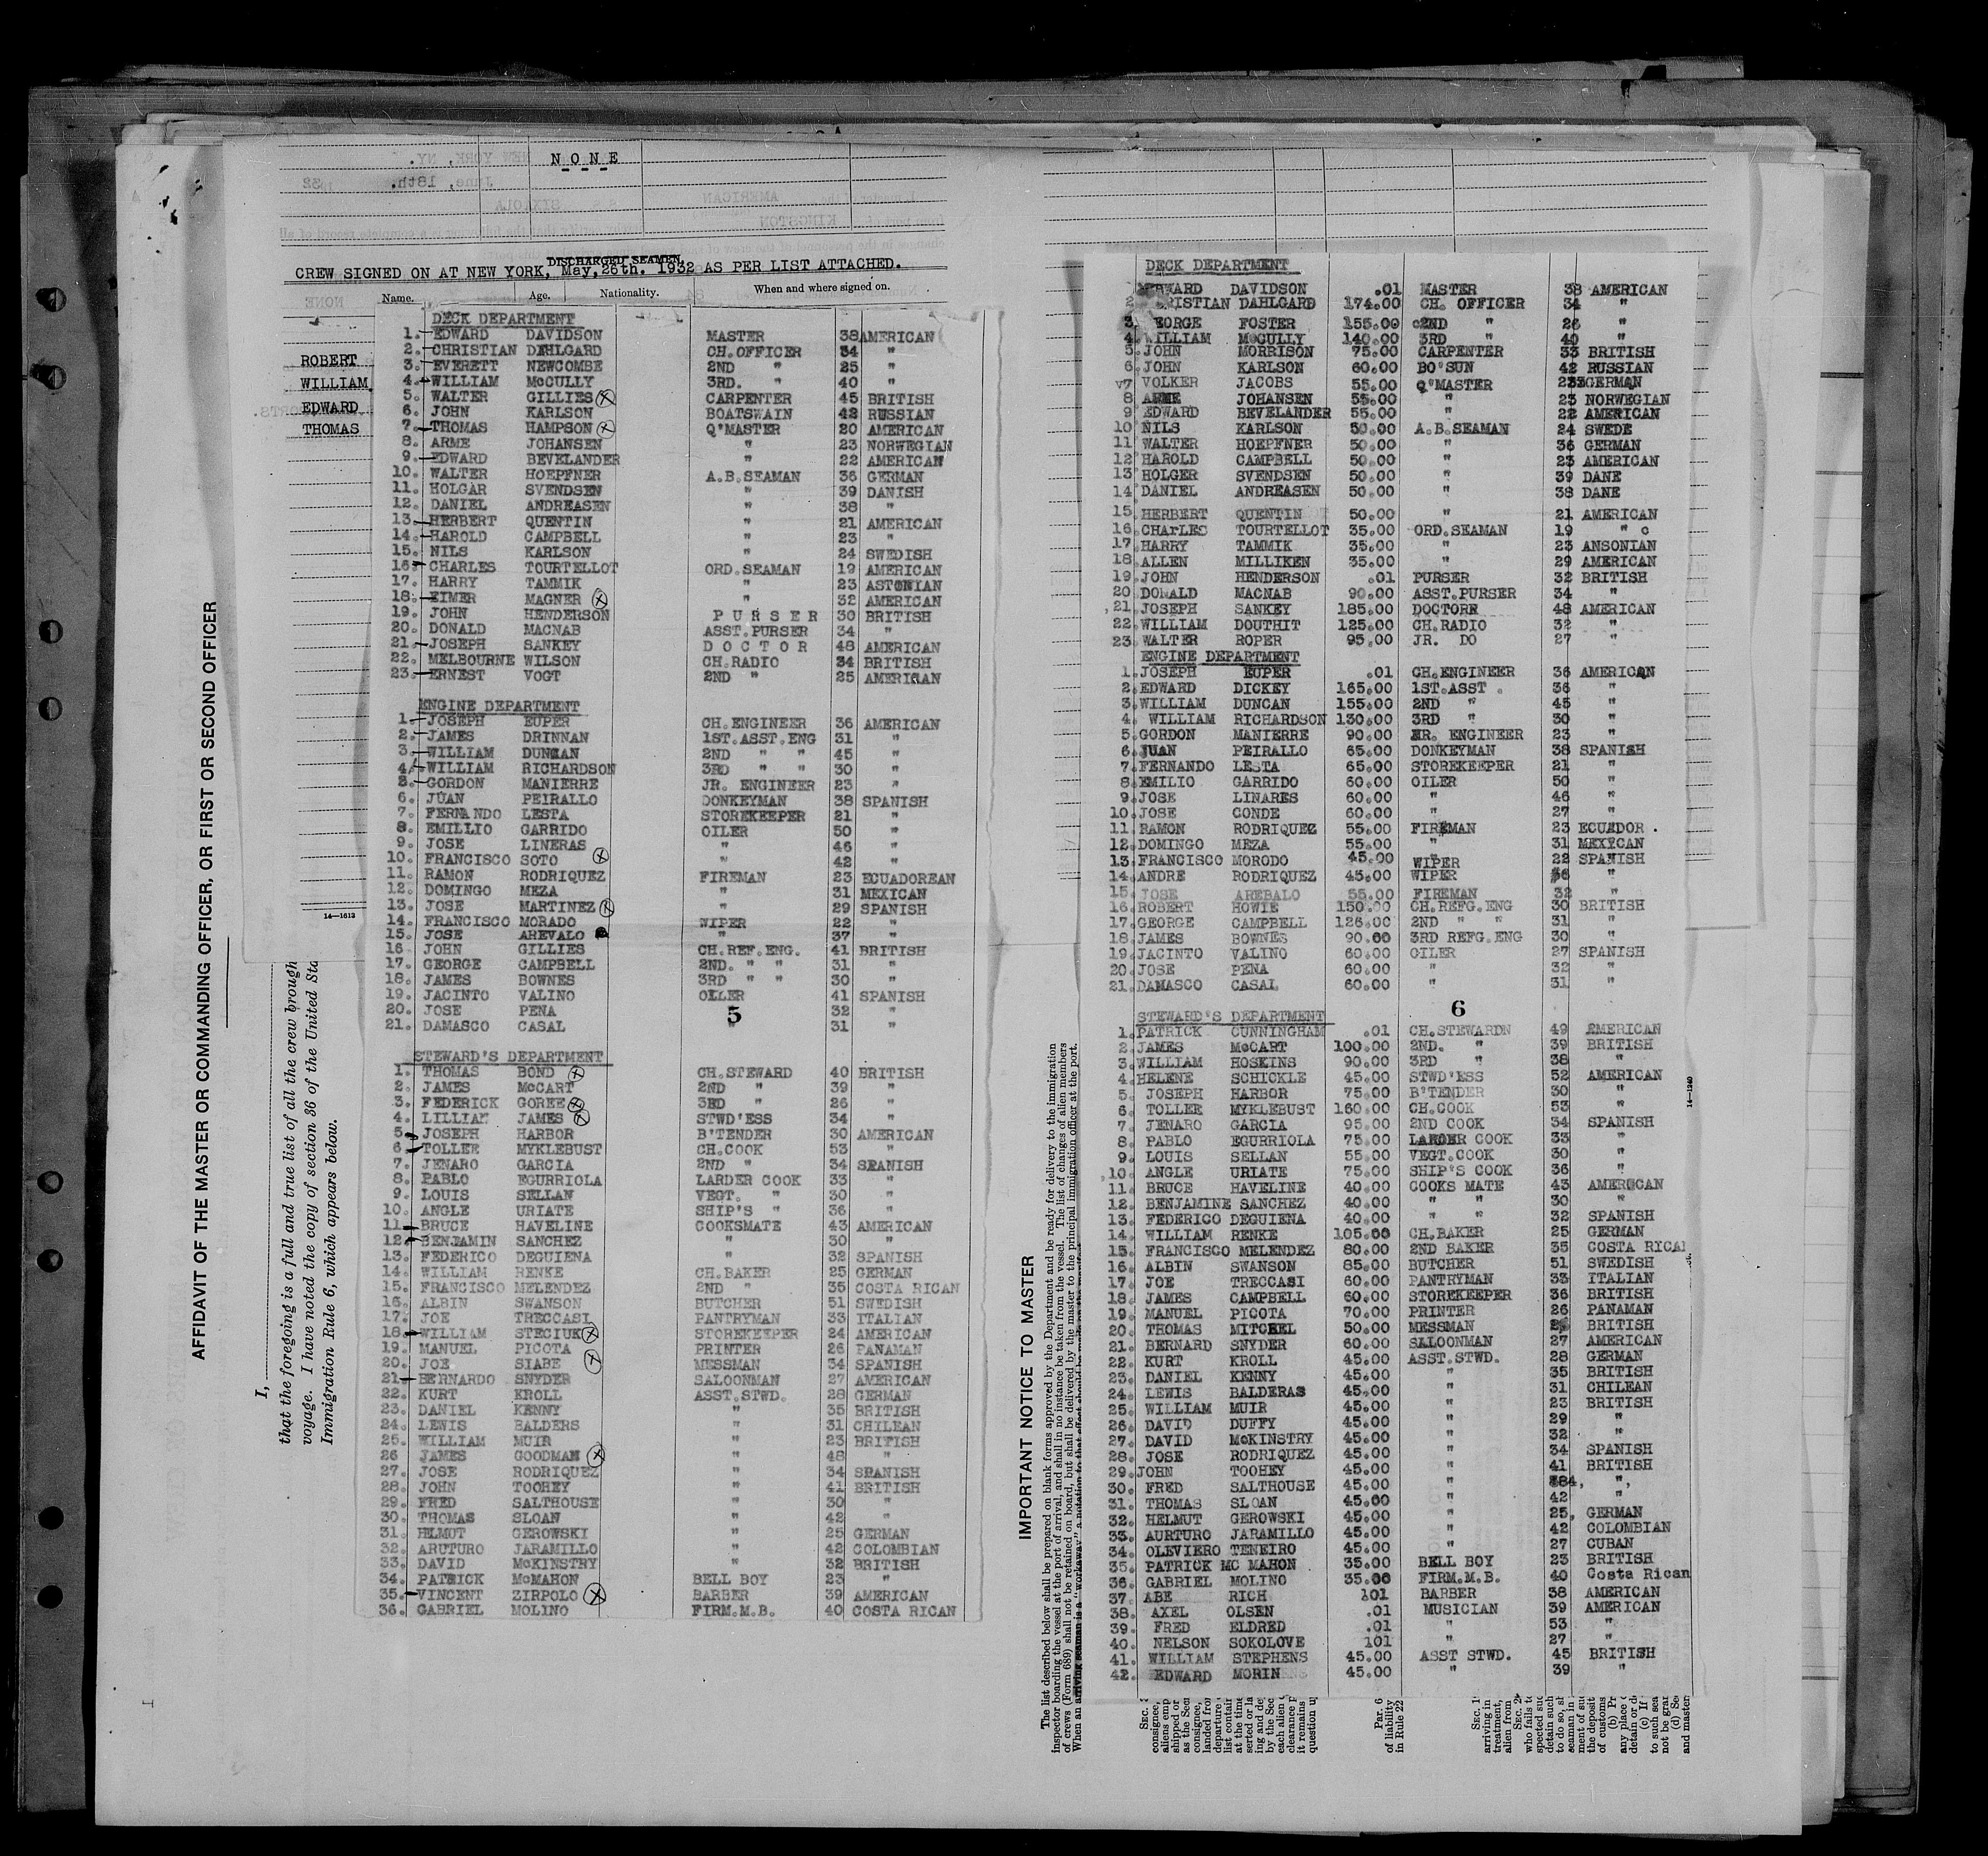 N O N E
CREW SIGNED ON AT NEW YORK, May, 26th. 1932 AS PER LIST ATTACHED.
DISCHARGED SEAMEN.
Name. Age. Nationality. When and where signed on.
ROBERT
WILLIAM
EDWARD
THOMAS
DECK DEPARTMENT
1. EDWARD DAVIDSON MASTER 38 AMERICAN
2. CHRISTIAN DEHLGARD CH.OFFICER 34 "
3. EVERETT NEWCOMBE 2ND " 25 "
4. WILLIAM McCULLY 3RD. " 40 "
5. WALTER GILLIES CARPENTER 45 BRITISH
6. JOHN KARLSON BOATSWAIN 42 RUSSIAN
7. THOMAS HAMPSON Q'MASTER 20 AMERICAN
8. ARME JOHANSEN " 23 NORWEGIAN
9. EDWARD BEVELANDER " 22 AMERICAN
10. WALTER HOEPFNER A.B.SEAMAN 36 GERMAN
11. HOLGAR SVENDSEN " 39 DANISH
12. DANIEL ANDREASEN " 38 "
13. HERBERT QUENTIN " 21 AMERICAN
14. HAROLD CAMPBELL " 23 "
15. NILS KARLSON " 24 SWEDISH
16. CHARLES TOURTELLOT ORD.SEAMAN 19 AMERICAN
17. HARRY TAMMIK " 23 ASTONIAN
18. EIMER MAGNER " 32 AMERICAN
19. JOHN HENDERSON P U R S E R 30 BRITISH
20. DONALD MACNAB ASST.PURSER 34 "
21. JOSEPH SANKEY D O C T O R 48 AMERICAN
22. MELBOURNE WILSON CH.RADIO 34 BRITISH
23. ERNEST VOGT 2ND " 25 AMERICAN
ENGINE DEPARTMENT
1. JOSEPH EUPER CH.ENGINEER 36 AMERICAN
2. JAMES DRINNAN 1ST.ASST.ENG 31 "
3. WILLIAM DUNCAN 2ND " " 45 "
4. WILLIAM RICHARDSON 3RD " " 30 "
GORDON MANIERRE JR. ENGINEER 23 "
6. JUAN PEIRALLO DONKEYMAN 38 SPANISH
7. FERNANDO LESTA STOREKEEPER 21 "
8. EMILLIO GARRIDO OILER 50 "
9. JOSE LINERAS " 46 "
10. FRANCISCO SOTO " 42 "
11. RAMON RODRIQUEZ FIREMAN 23 ECUADOREAN
12. DOMINGO MEZA " 31 MEXICAN
13. JOSE MARTINEZ " 29 SPANISH
14. FRANCISCO MORADO WIPER 22 "
15. JOSE AREVALO " 37 "
16. JOHN GILLIES CH.REF.ENG. 41 BRITISH
17. GEORGE CAMPBELL 2ND. " " 31 "
18. JAMES BOWNES 3RD " " 30 "
19. JACINTO VALINO OILER 41 SPANISH
20. JOSE PENA 32 "
21. DAMASCO CASAL " 31 "
5
STEWARD'S DEPARTMENT
1. THOMAS BOND CH.STEWARD 40 BRITISH
2. JAMES McCART 2ND " 39 "
3. FEDERICK GOREE 3RD " 26 "
4. LILLIAN JAMES STWD'ESS 34 "
5. JOSEPH HARBOR B'TENDER 30 AMERICAN
6. TOLLER MYKLEBUST CH.COOK 53 "
7. JENARO GARCIA 2ND " 34 SPANISH
8. PABLO EGURRIOLA LARDER COOK 33 "
9. LOUIS SELLAN VEGT. " 30 "
10. ANGLE URIATE SHIP'S " 36 "
11. BRUCE HAVELINE COOKSMATE 43 AMERICAN
12. BENJAMIN SANCHEZ " 30 "
13. FEDERICO DEGUIENA " 32 SPANISH
14. WILLIAM RENKE CH.BAKER 25 GERMAN
15. FRANCISCO MELENDEZ 2ND " 35 COSTA RICAN
16. ALBIN SWANSON BUTCHER 51 SWEDISH
17. JOE TRECCASI PANTRYMAN 33 ITALIAN
18. WILLIAM STECIUK STOREKEEPER 24 AMERICAN
19. MANUEL PICOTA PRINTER 26 PANAMAN
20. JOE SIABE MESSMAN 34 SPANISH
21. BERNARDO SNYDER SALOONMAN 27 AMERICAN
22. KURT KROLL ASST.STWD. 28 GERMAN
23. DANIEL KENNY " 35 BRITISH
24. LEWIS BALDERS " 31 CHILEAN
25. WILLIAM MUIR " 23 BRITISH
26 JAMES GOODMAN " 48 "
27. JOSE RODRIQUEZ " 34 SPANISH
28. JOHN TOOHEY " 41 BRITISH
29. FRED SALTHOUSE " 30 "
30. THOMAS SLOAN " 42 "
31. HLMOT GEROWSKI " 25 GERMAN
32. ARUTURO JARAMILLO " 42 COLOMBIAN
33. DAVID McKINSTRY " 32 BRITISH
34. PATRICK McMAHON BELL BOY 23 "
35. VINCENT ZIRPOLO BARBER 39 AMERICAN
36. GABRIEL MOLINO FIRM.M.B. 40 COSTA RICAN
14—1613
AFFIDAVIT OF THE MASTER OR COMMANDING OFFICER, OR FIRST OR SECOND OFFICER
I,
that the foregoing is a full and true list of all the crew brough
voyage. I have noted the copy of section 36 of the United Sta
Immigration Rule 6, which appears below.
DECK DEPARTMENT
EDWARD DAVIDSON .01 MASTER 38 AMERICAN
2 RISTIAN DAHLGARD 174.00 CH. OFFICER 34 "
3. EORGE FOSTER 155.00 2ND " 26 "
4. WILLIAM McCULLY 140.00 3RD " 40 "
5. JOHN MORRISON 75.00 CARPENTER 33 BRITISH
6. JOHN KARLSON 60.00 BO'SUN 42 RUSSIAN
7 VOLKER JACOBS 55.00 Q'MASTER 23 GERMAN
8 ARME JOHANSEN 55.00 " 23 NORWEGIAN
9 EDWARD BEVELANDER 55.00 " 22 AMERICAN
10 NILS KARLSON 50.00 A.B.SEAMAN 24 SWEDE
11 WALTER HOEPFNER 50.00 " 36 GERMAN
12 HAROLD CAMPBELL 50.00 " 23 AMERICAN
13 HOLGER SVENDSEN 50.00 " 39 DANE
14 DANIEL ANDREASEN 50.00 " 38 DANE
15. HERBERT QUENTIN 50.00 " 21 AMERICAN
16. CHArLES TOURTELLOT 35.00 ORD.SEAMAN 19 "
17. HARRY TAMMIK 35.00 " 23 ANSONIAN
18. ALLEN MILLIKEN 35.00 " 29 AMERICAN
19. JOHN HENDERSON .01 PURSER 32 BRITISH
20 DONALD MACNAB 90.00 ASST.PURSER 34 "
21. JOSEPH SANKEY 185.00 DOCTORR 48 AMERICAN
22. WILLIAM DOUTHIT 125.00 CH.RADIO 32 "
23. WALTER ROPER 95.00 JR. DO 27 "
ENGINE DEPARTMENT
1. JOSEPH EUPER .01 CH.ENGINEER 36 AMERICAN
2. EDWARD DICKEY 165.00 1ST.ASST . 36 "
3. WILLIAM DUNCAN 155.00 2ND " 45 "
4. WILLIAM RICHARDSON 130.00 3RD " 30 "
5. GORDON MANIERRE 90.00 JR. ENGINEER 23 "
6. JUAN PEIRALLO 65.00 DONKEYMAN 38 SPANISH
7. FERNANDO LESTA 65.00 STOREKEEPER 21 "
8. EMILIO GARRIDO 60.00 OILER 50 "
9. JOSE LINARES 60.00 " 46 "
10. JOSE CONDE 60.00 " 27 "
11. RAMON RODRIQUEZ 55.00 FIREMAN 23 ECUADOR .
12. DOMINGO MEZA 55.00 " 31 MEXICAN
13. FRANCISCO MORODO 45.00 WIPER 22 SPANISH
14. ANDRE RODRIQUEZ 45.00 WIPER 36 "
15. JOSE AREBALO 55.00 FIREMAN 32 "
16. ROBERT HOWIE 150.00 CH.REFG.ENG 30 BRITISH
17. GEORGE CAMPBELL 126.00 2ND " " 31 "
18. JAMES BOWNES 90.00 3RD REFG.ENG 30 "
19. JACINTO VALINO 60.00 OILER 27 SPANISH
20. JOSE PENA 60.00 " 32 "
21. DAMASCO CASAL 60.00 " 31 "
6
STEWARD'S DEPARTMENT
1. PATRICK CUNNINGHAM .01 CH.STEWARDN 49 AMERICAN
2. JAMES McCART 100.00 2ND. " 39 BRITISH
3. WILLIAM HOSKINS 90.00 3RD " 38 "
4. HELENE SCHICKLE 45.00 STWD'ESS 52 AMERICAN
5. JOSEPH HARBOR 75.00 B'TENDER 30 "
6. TOLLER MYKLEBUST 160.00 CH.COOK 53 "
7. JENARO GARCIA 95.00 2ND COOK 34 SPANISH
8. PABLO EGURRIOLA 75.00 LARDER COOK 33 "
9. LOUIS SELLAN 55.00 VEGT.COOK 30 "
10. ANGLE URIATE 75.00 SHIP'S COOK 36 "
11. BRUCE HAVELINE 40.00 COOKS MATE 43 AMERICAN
12. BENJAMINE SANCHEZ 40.00 " " 30 "
13. FEDERICO DEGUIENA 40.00 " " 32 SPANISH
14. WILLIAM RENKE 105.00 CH.BAKER 25 GERMAN
15. FRANCISCO MELENDEZ 80.00 2ND BAKER 35 COSTA RICAN
16. ALBIN SWANSON 85.00 BUTCHER 51 SWEDISH
17. JOE TRECCASI 60.00 PANTRYMAN 33 ITALIAN
18. JAMES CAMPBELL 60.00 STOREKEEPER 36 BRITISH
19. MANUEL PICOTA 70.00 PRINTER 26 PANAMAN
20. THOMAS MITCHEL 50.00 MESSMAN BRITISH
21. BERNARD SNYDER 60.00 SALOONMAN 27 AMERICAN
22. KURT KROLL 45.00 ASST.STWD. 28 GERMAN
23. DANIEL KENNY 45.00 " 35 BRITISH
24. LEWIS BALDERAS 45.00 " 31 CHILEAN
25. WILLIAM MUIR 45.00 " 23 BRITISH
26. DAVID DUFFY 45.00 " 29 "
27. DAVID McKINSTRY 45.00 " 32 "
28. JOSE RODRIQUEZ 45.00 " 34 SPANISH
29. JOHN TOOHEY 45.00 " 41 BRITISH
30. FRED SALTHOUSE 45.00 " "
31. THOMAS SLOAN 45.00 " 42 "
32. HELMUT GEROWSKI 45.00 " 25, GERMAN
33. AURTURO JARAMILLO 45.00 " 42 COLOMBIAN
34. OLEVIERO TENEIRO 45.00 " 27 CUBAN
35. PATRICK MC MAHON 35.00 BELL BOY 23 BRITISH
36. GABRIEL MOLINO 35.00 FIRM.M.B. 40 Costa Rican
37. ABE RICH 101 BARBER 38 AMERICAN
38. AXEL OLSEN .01 MUSICIAN 39 AMERICAN
39. FRED ELDRED .01 " 53 "
40. NELSON SOKOLOVE 101 " 27 "
41. WILLIAM STEPHENS 45.00 ASST STWD. 45 BRITISH
42. EDWARD MORIN 45.00 " 39 "
14—1240
IMPORTANT NOTICE TO MASTER
The list described below shall be prepared on blank forms approved by the Department and be ready for delivery to the immigration
inspector boarding the vessel at the port of arrival, and shall in no instance be taken from the vessel. The list of changes of alien members
of crews (Form 689) shall not be retained on board, but shall be delivered by the master to the principal immigration officer at the port.
When an arriving seaman is a "workaway" a notation to that effect should be made
consignee,
aliens emp
shipped or
as the Sec
consignee,
landed fro
departure
list contain
at the time
serted or la
ing and de
by the Sec
each alien
clearance p
it remains
question u
Par. 6
of liability
in Rule 22
SEC. 1
arriving in
treatment,
alien from
SEC. 2
who fails to
spected suc
detain such
to do so, sh
seaman in
ment of su
the deposit
of customs
(b) Pr
any place o
detain or d
(c) If
to such sea
not be gran
(d) Sec
and master